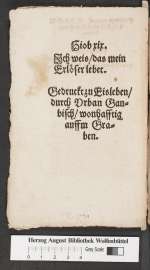 Hiob xix.
Ich weis/das mein
Erlöser lebet.
Gedruckt zu Eisleben/
durch Vrban Gau-
bisch/wonhafftig
auffm Gra-
ben.
Herzog August Bibliothek Wolfenbüttel
Grey Scale